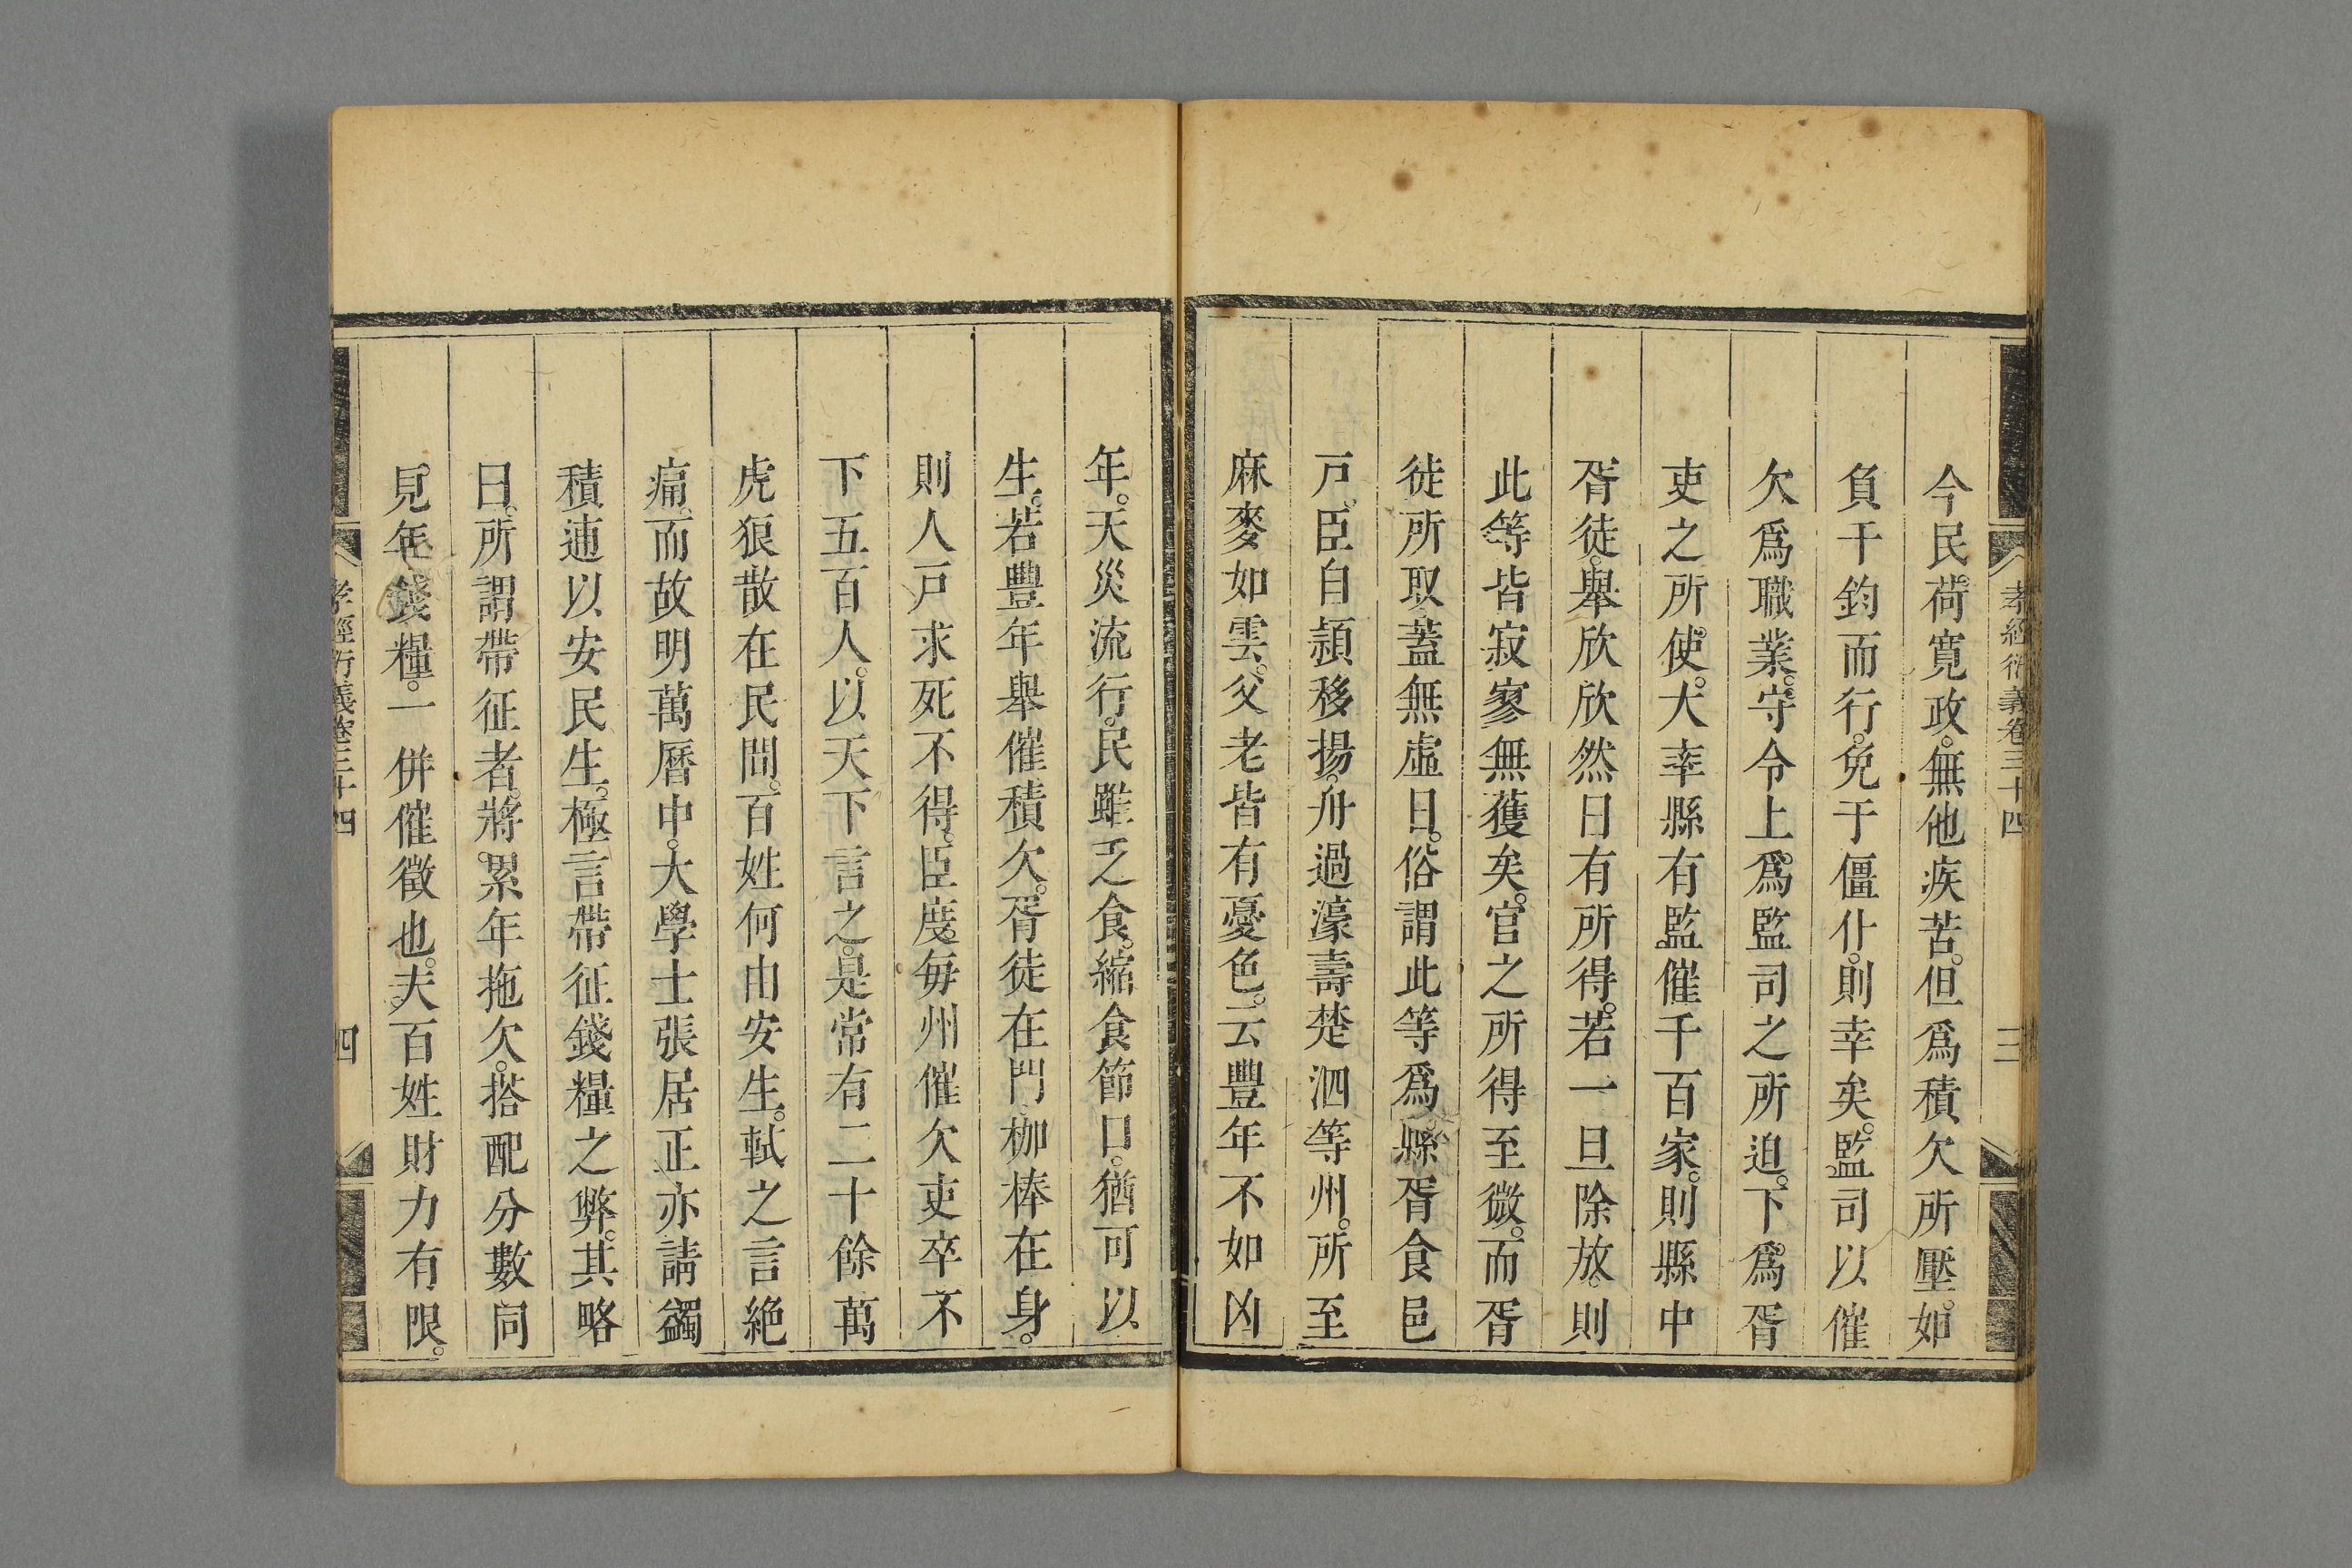 孝經衍義卷三十四
三
今民荷寬政。無他疾苦。但爲積欠所壓。如
負千鈞而行。免于僵仆。則幸矣。監司以催
欠爲職業。守令上爲監司之所迫。下爲胥
吏之所使。大率縣有監催千百家。則縣中
胥徒。舉欣欣然日有所得。若一旦除放。則
此等皆寂寥無獲矣。官之所得至微。而胥
徒所取蓋無虛日。俗謂此等爲縣胥食邑
戸。臣自潁移揚。舟過濠壽楚泗等州。所至
麻麥如雲。父老皆有憂色。云豐年不如凶
年。天災流行。民雖乏食。縮食節口。猶可以
生。若豐年舉催積欠。胥徒在門枷棒在身。
則人戸求死不得。臣度。每州催欠吏卒不
下五百人。以天下言之。是常有二十餘萬
虎狼散在民間。百姓何由安生。軾之言絶
痛。而故明萬曆中。大學士張居正亦請蠲
積逋以安民生。極言帶征錢糧之弊。其略
曰。所謂帶征者。將。累年拖欠。搭配分數同
見年錢糧。一併催徵也。夫百姓財力有限。
孝經衍義卷三十四
四